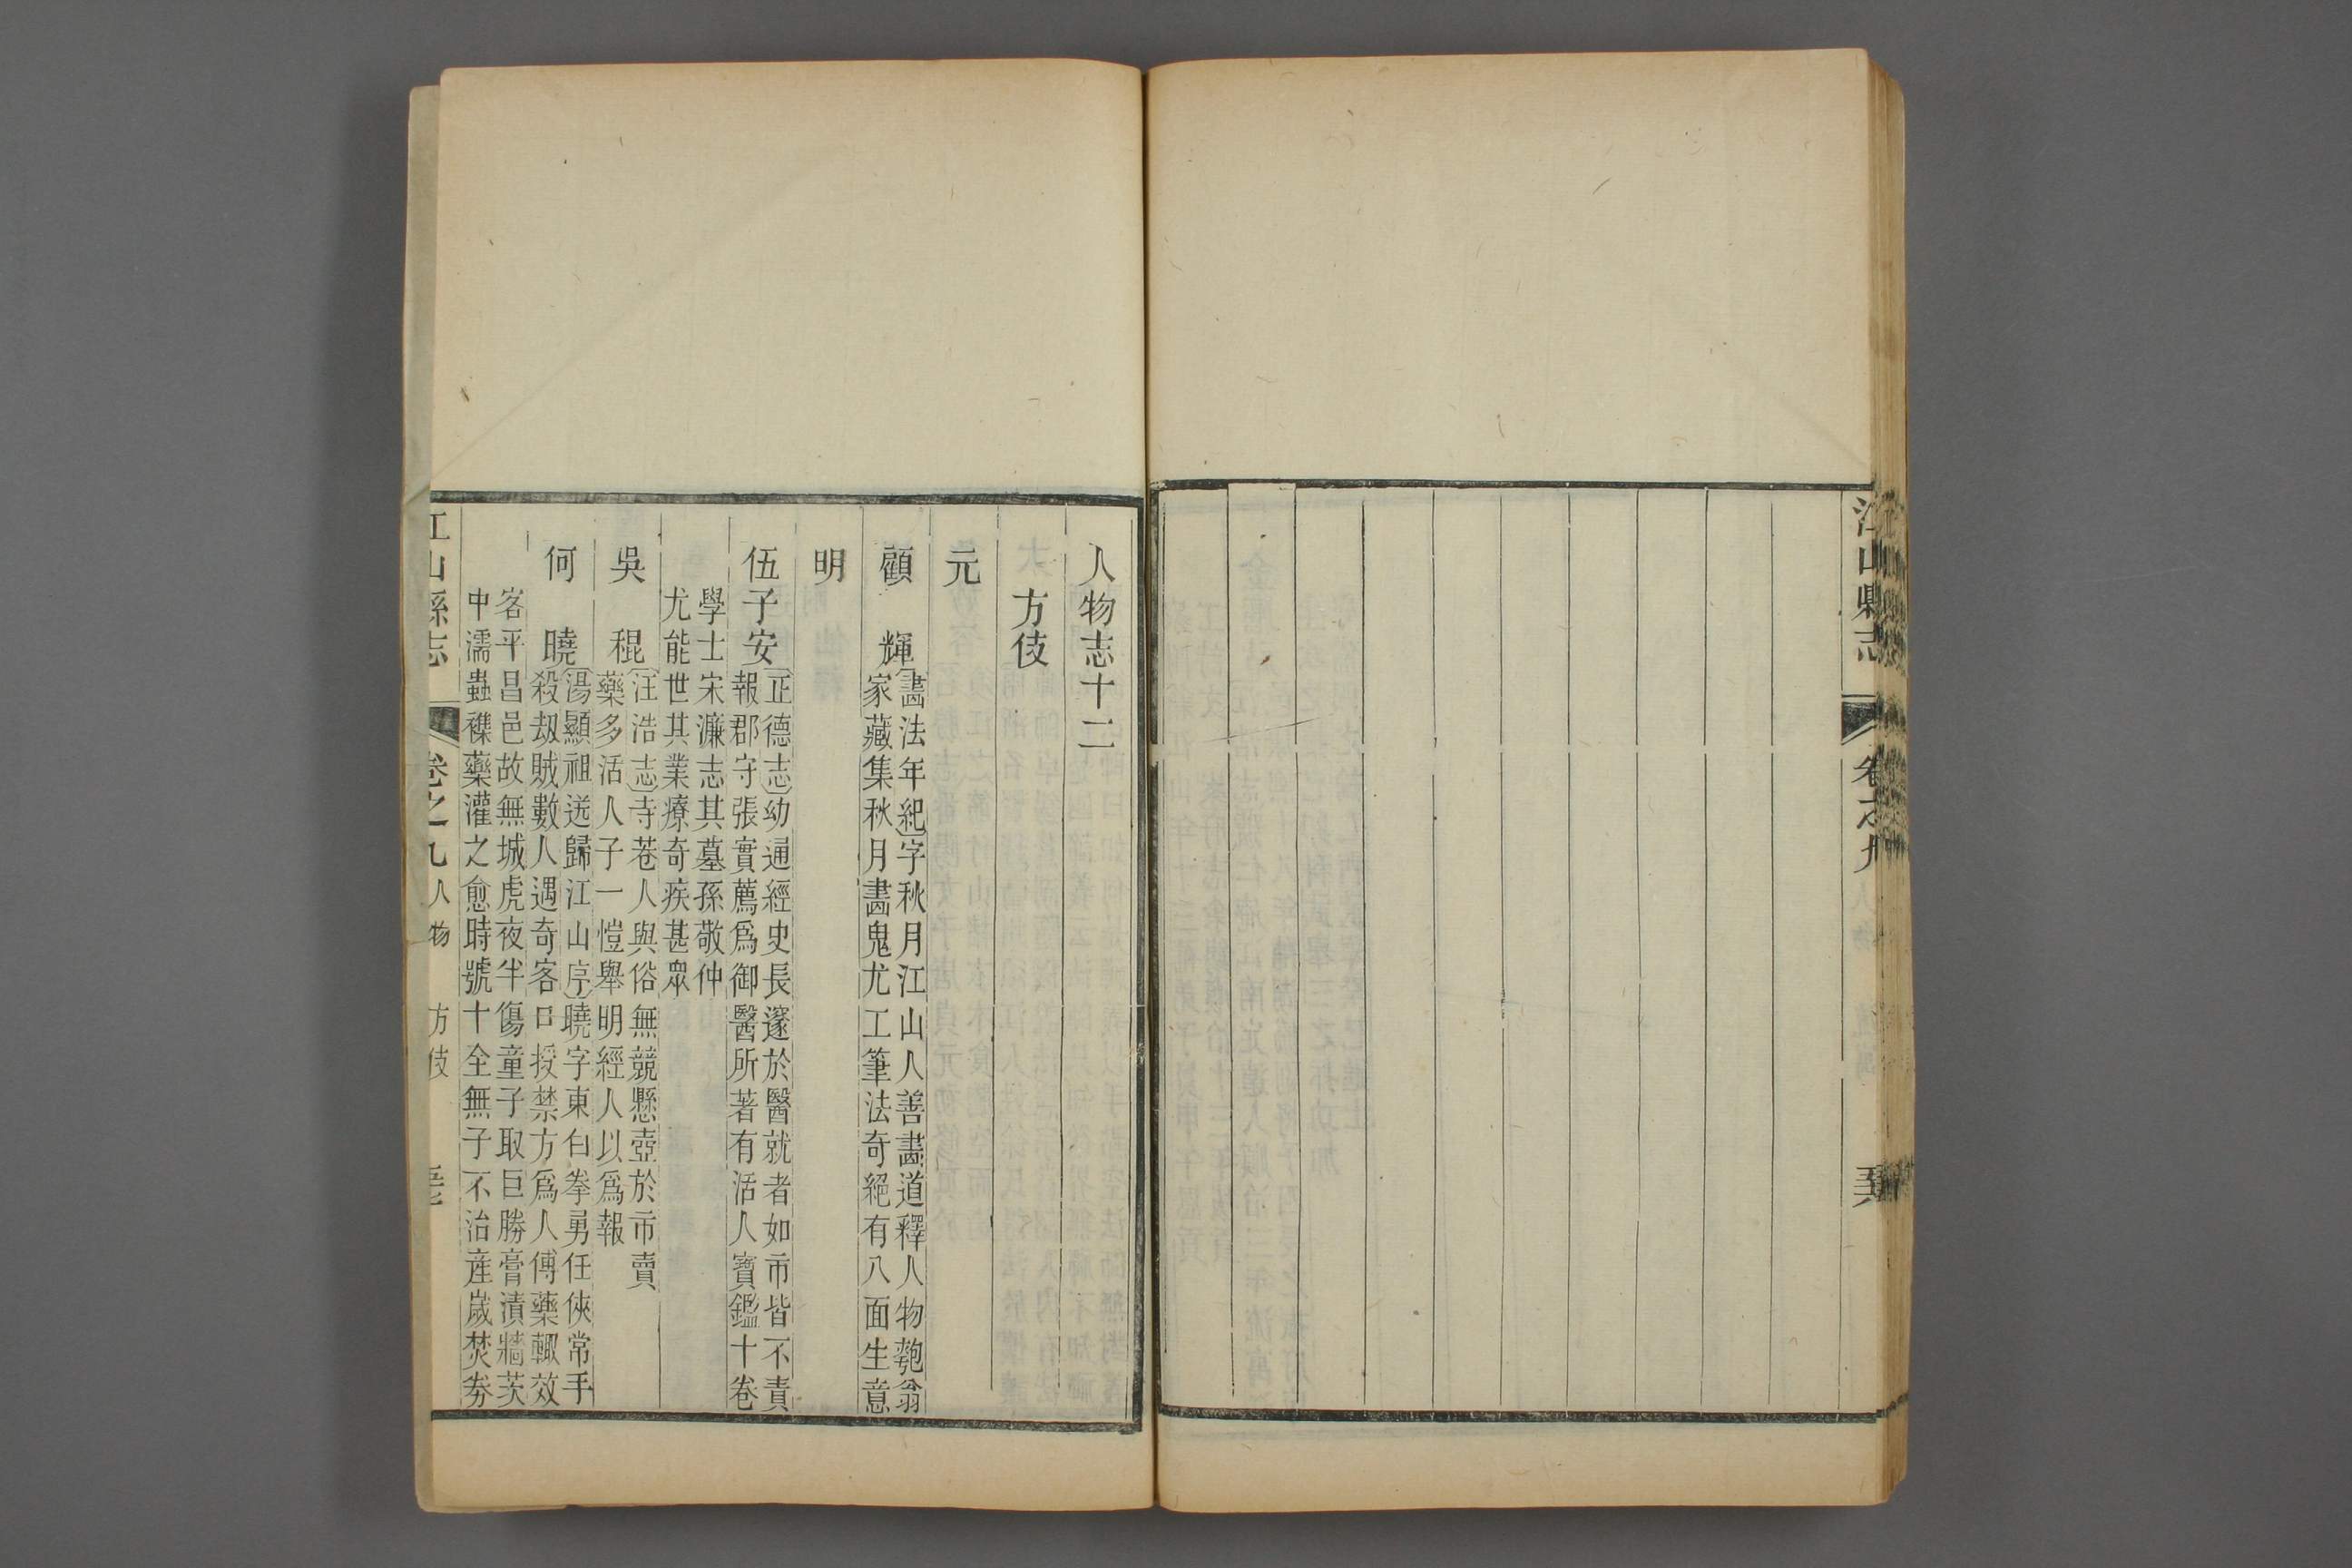 江山縣志
卷之九
人物志十二
方伎
元
顧輝〔畵法年紀〕字秋月江山人善畵道釋人物匏翁
家藏集秋月畵鬼尤工筆法奇絕有八面生意
明
伍子安〔正德志〕幼通經史長邃於醫就者如市皆不責
報郡守張實薦爲御醫所著有活人寶鑑十卷
學士宋濂志其墓孫敬仲
尤能世其業療奇疾甚眾
吳稛〔汪浩志〕寺巷人與俗無競懸壺於市賣
藥多活人子一愷舉明經人以爲報
何曉〔湯顯祖送歸江山序〕曉字東白拳勇任俠常手
殺刼賊數人遇奇客口授禁方爲人傅藥輙效
客平昌邑故無城虎夜半傷童子取巨勝膏漬牆茨
中濡蟲襍藥灌之愈時號十全無子不治産嵗焚券
江山縣志
卷之九
人物
方伎